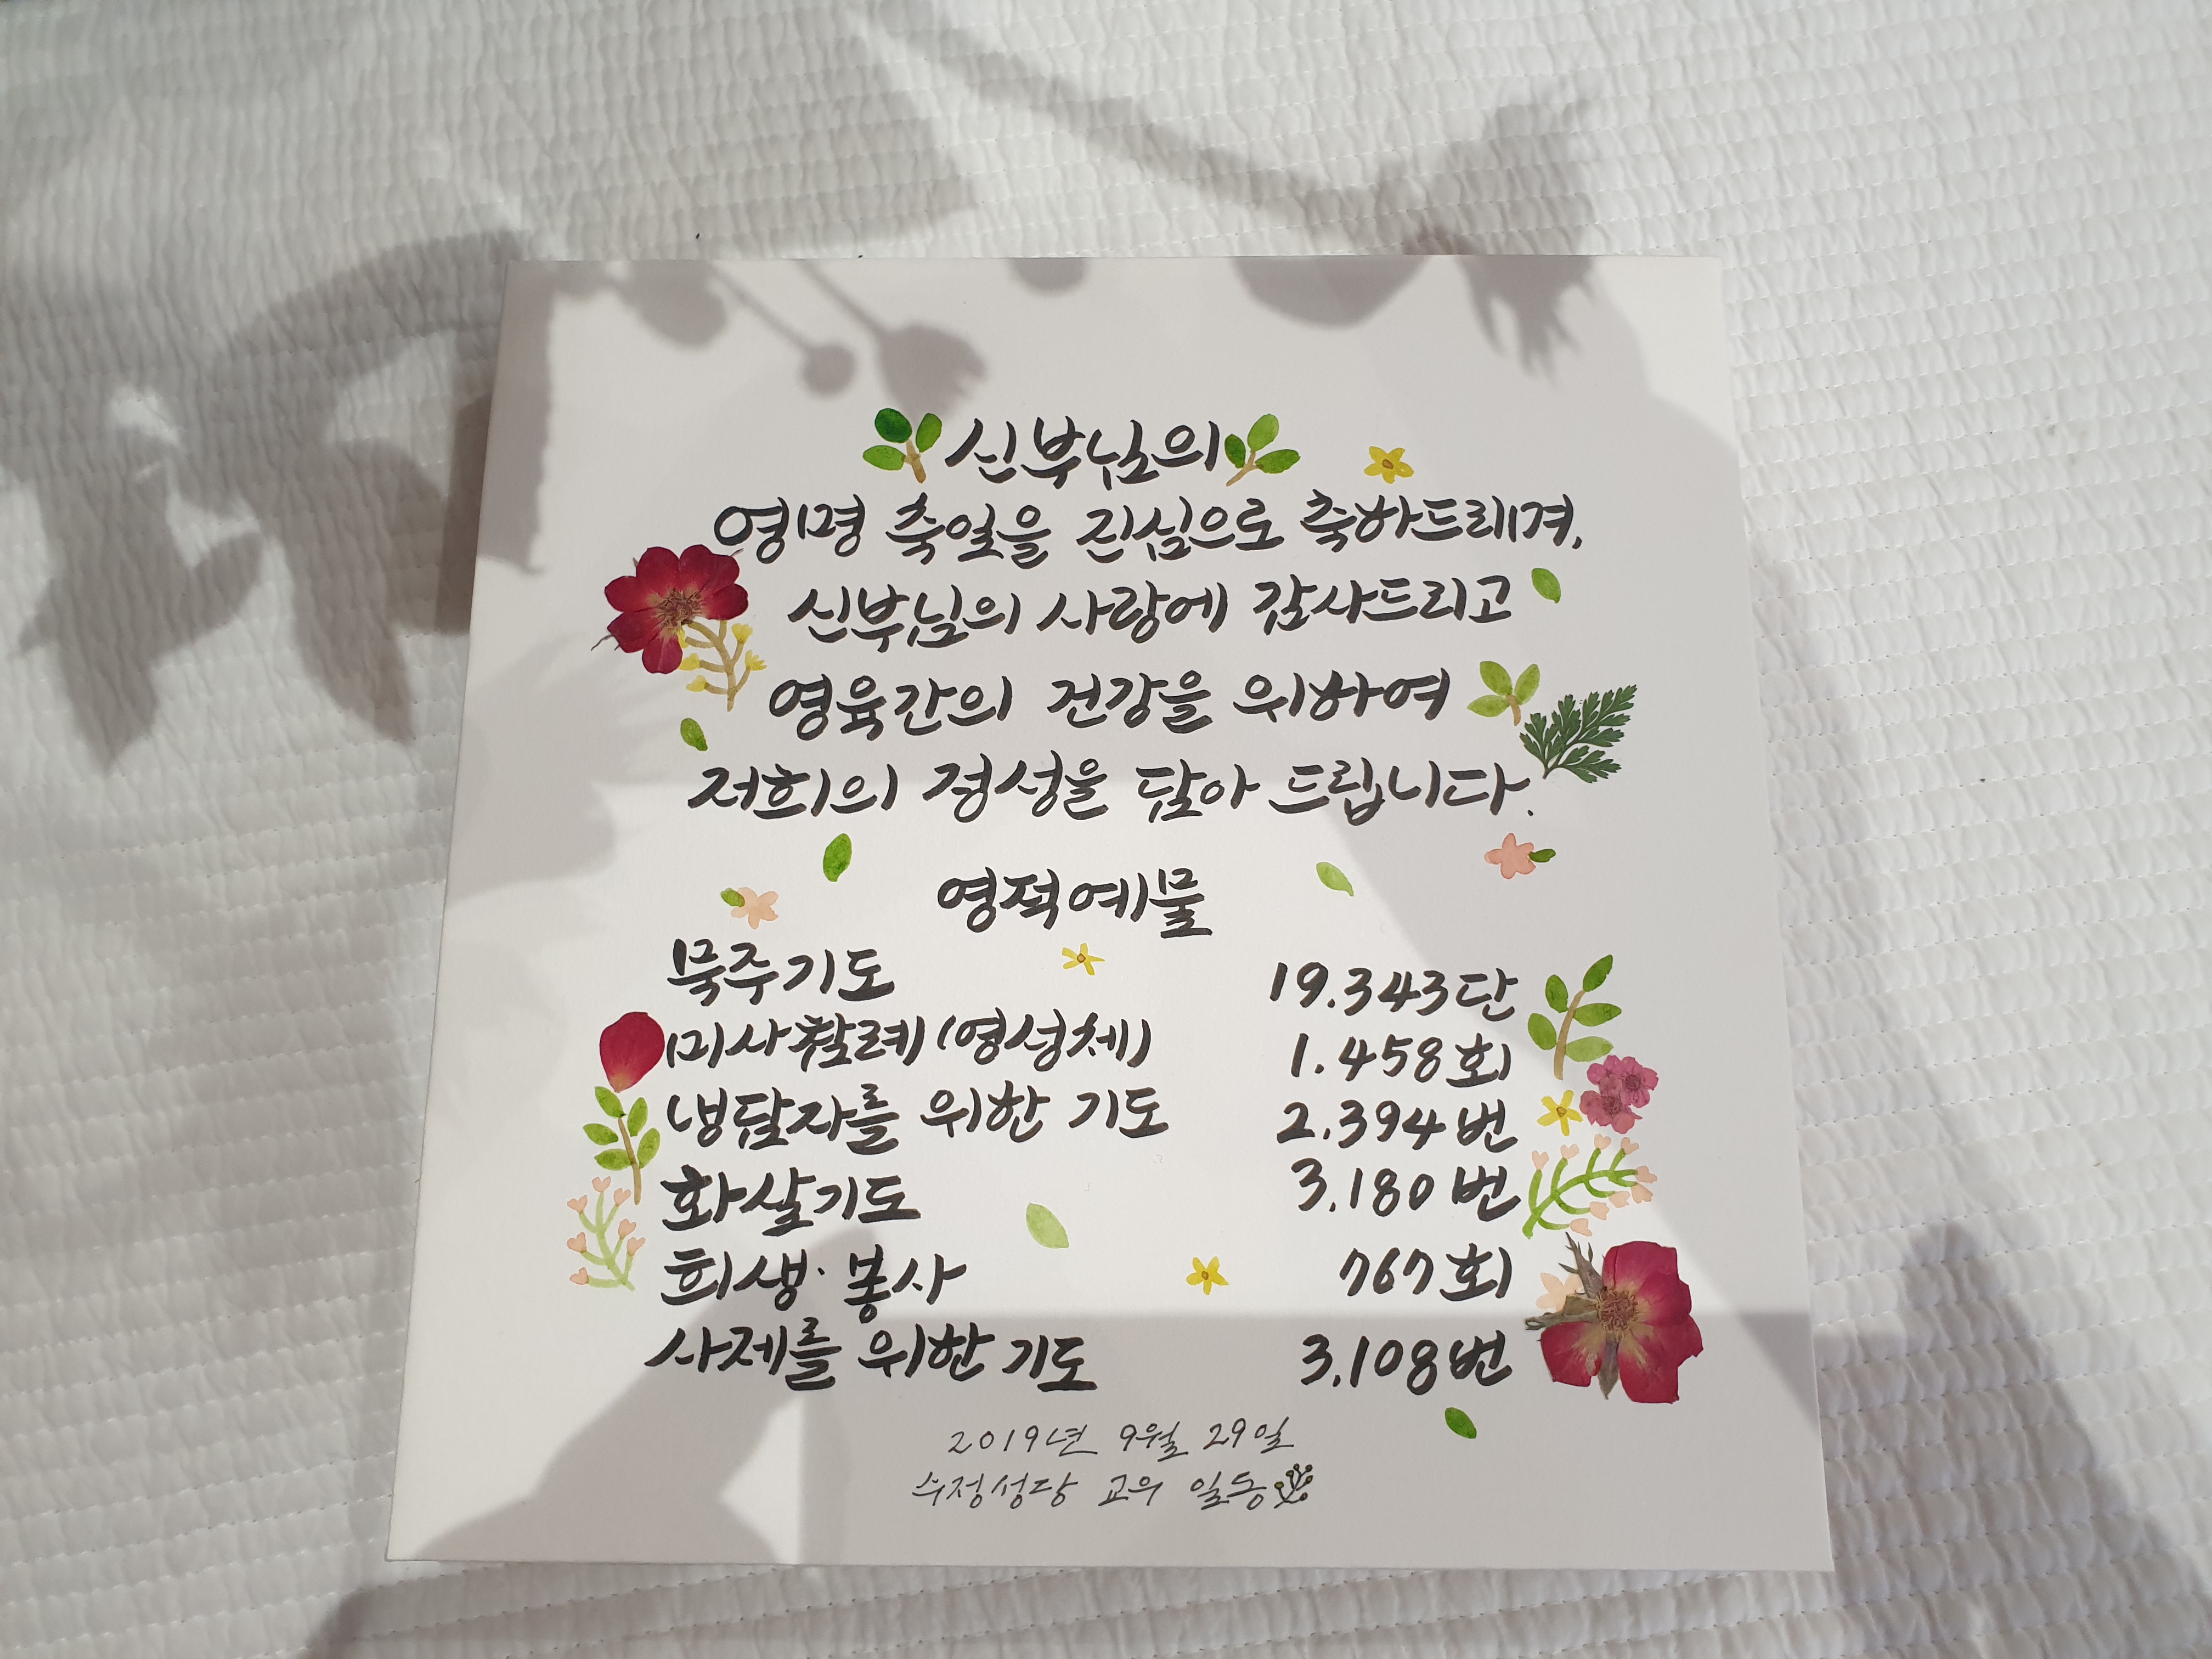 신부님의
영명 축일을 진심으로 축하드리며,
신부님의 사랑에 감사드리고
영육간의 건강을 위하여
저희의 정성을 담아 드립니다.
영적예물
묵주기도 19.343단
미사참례(영성체) 1.458회
냉담자를 위한 기도 2.394번
화살기도 3.180번
희생·봉사 767회
사제를 위한 기도 3.108번
2019년 9월 29일
수정성당 교우 일동